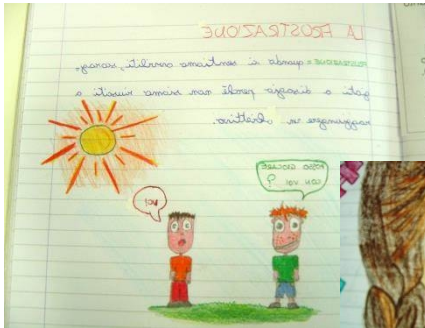 LA FRUSTRAZIONE
FRUSTRAZIONE = quando ci sentiamo avviliti, scorag-
giati a disagio perché non siamo riusciti a
raggiungere un obiettivo.
POSSO GIOCARE
CON VOI ?
NO!